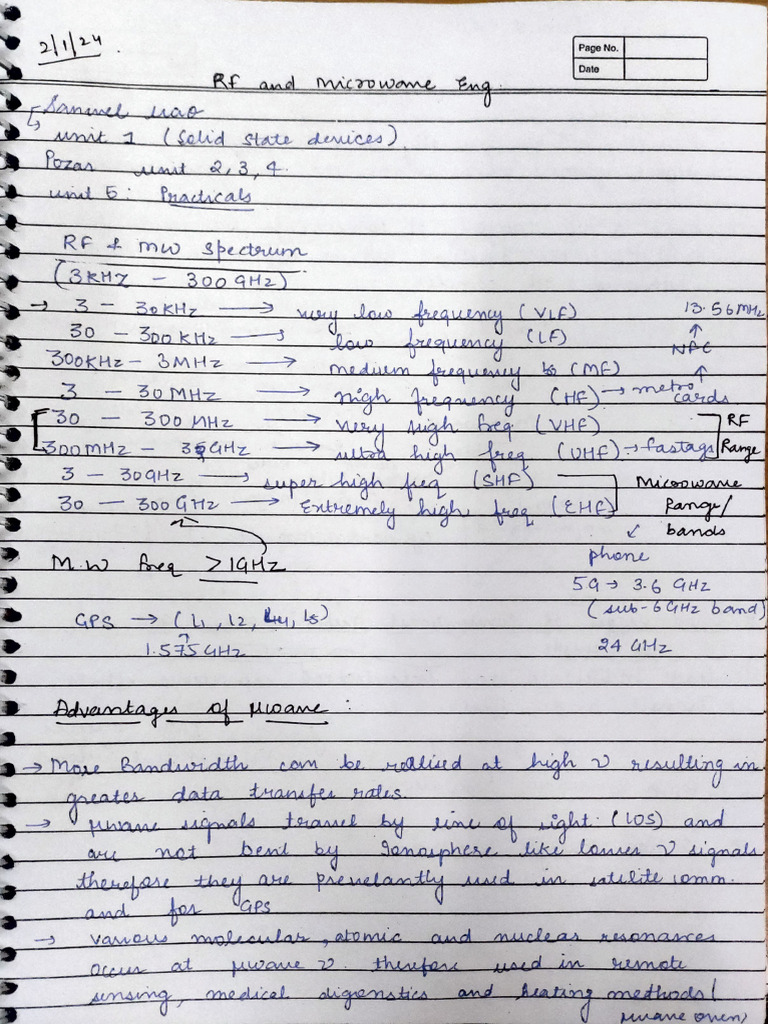 2/1/24.
Page No.
Date
RF and Microwave Eng.
Samuel Liao
unit 1 (Solid State devices)
Pozar unit 2, 3, 4.
unit 5: Practicals
RF & MW Spectrum
(3KHZ - 300GHz)
→ 3 - 30KHz → very low frequency (VLF) 13.56MHz
30 - 300KHz → low frequency (LF) ↑ NFC
300KHz - 3MHz → medium frequency (MF) ↑
3 - 30MHz → high frequency (HF) → metro cards
30 - 300 MHz → very high freq (VHF) RF
300MHz - 3GHz → ultra high freq (UHF) → fastags Range
3 - 30GHz → super high freq (SHF) Microwave
30 - 300GHz → Extremely high freq (EHF) Range/
bands
M.W freq > 1GHz
phone
5G → 3.6 GHz
(sub-6GHz band)
GPS → (L1, L2, L4, L5)
1.575GHz
24 GHz
Advantages of μwave :
→ More Bandwidth can be realised at high ν resulting in
greater data transfer rates.
→ μwave signals travel by line of sight (LOS) and
are not bent by Ionosphere like lower ν signals
therefore they are prevelantly used in satelite comm.
and for GPS
→ various molecular, atomic and nuclear resonances
occur at μwave ν. therefore used in remote
sensing, medical digonstics and heating methods (
μwave oven)